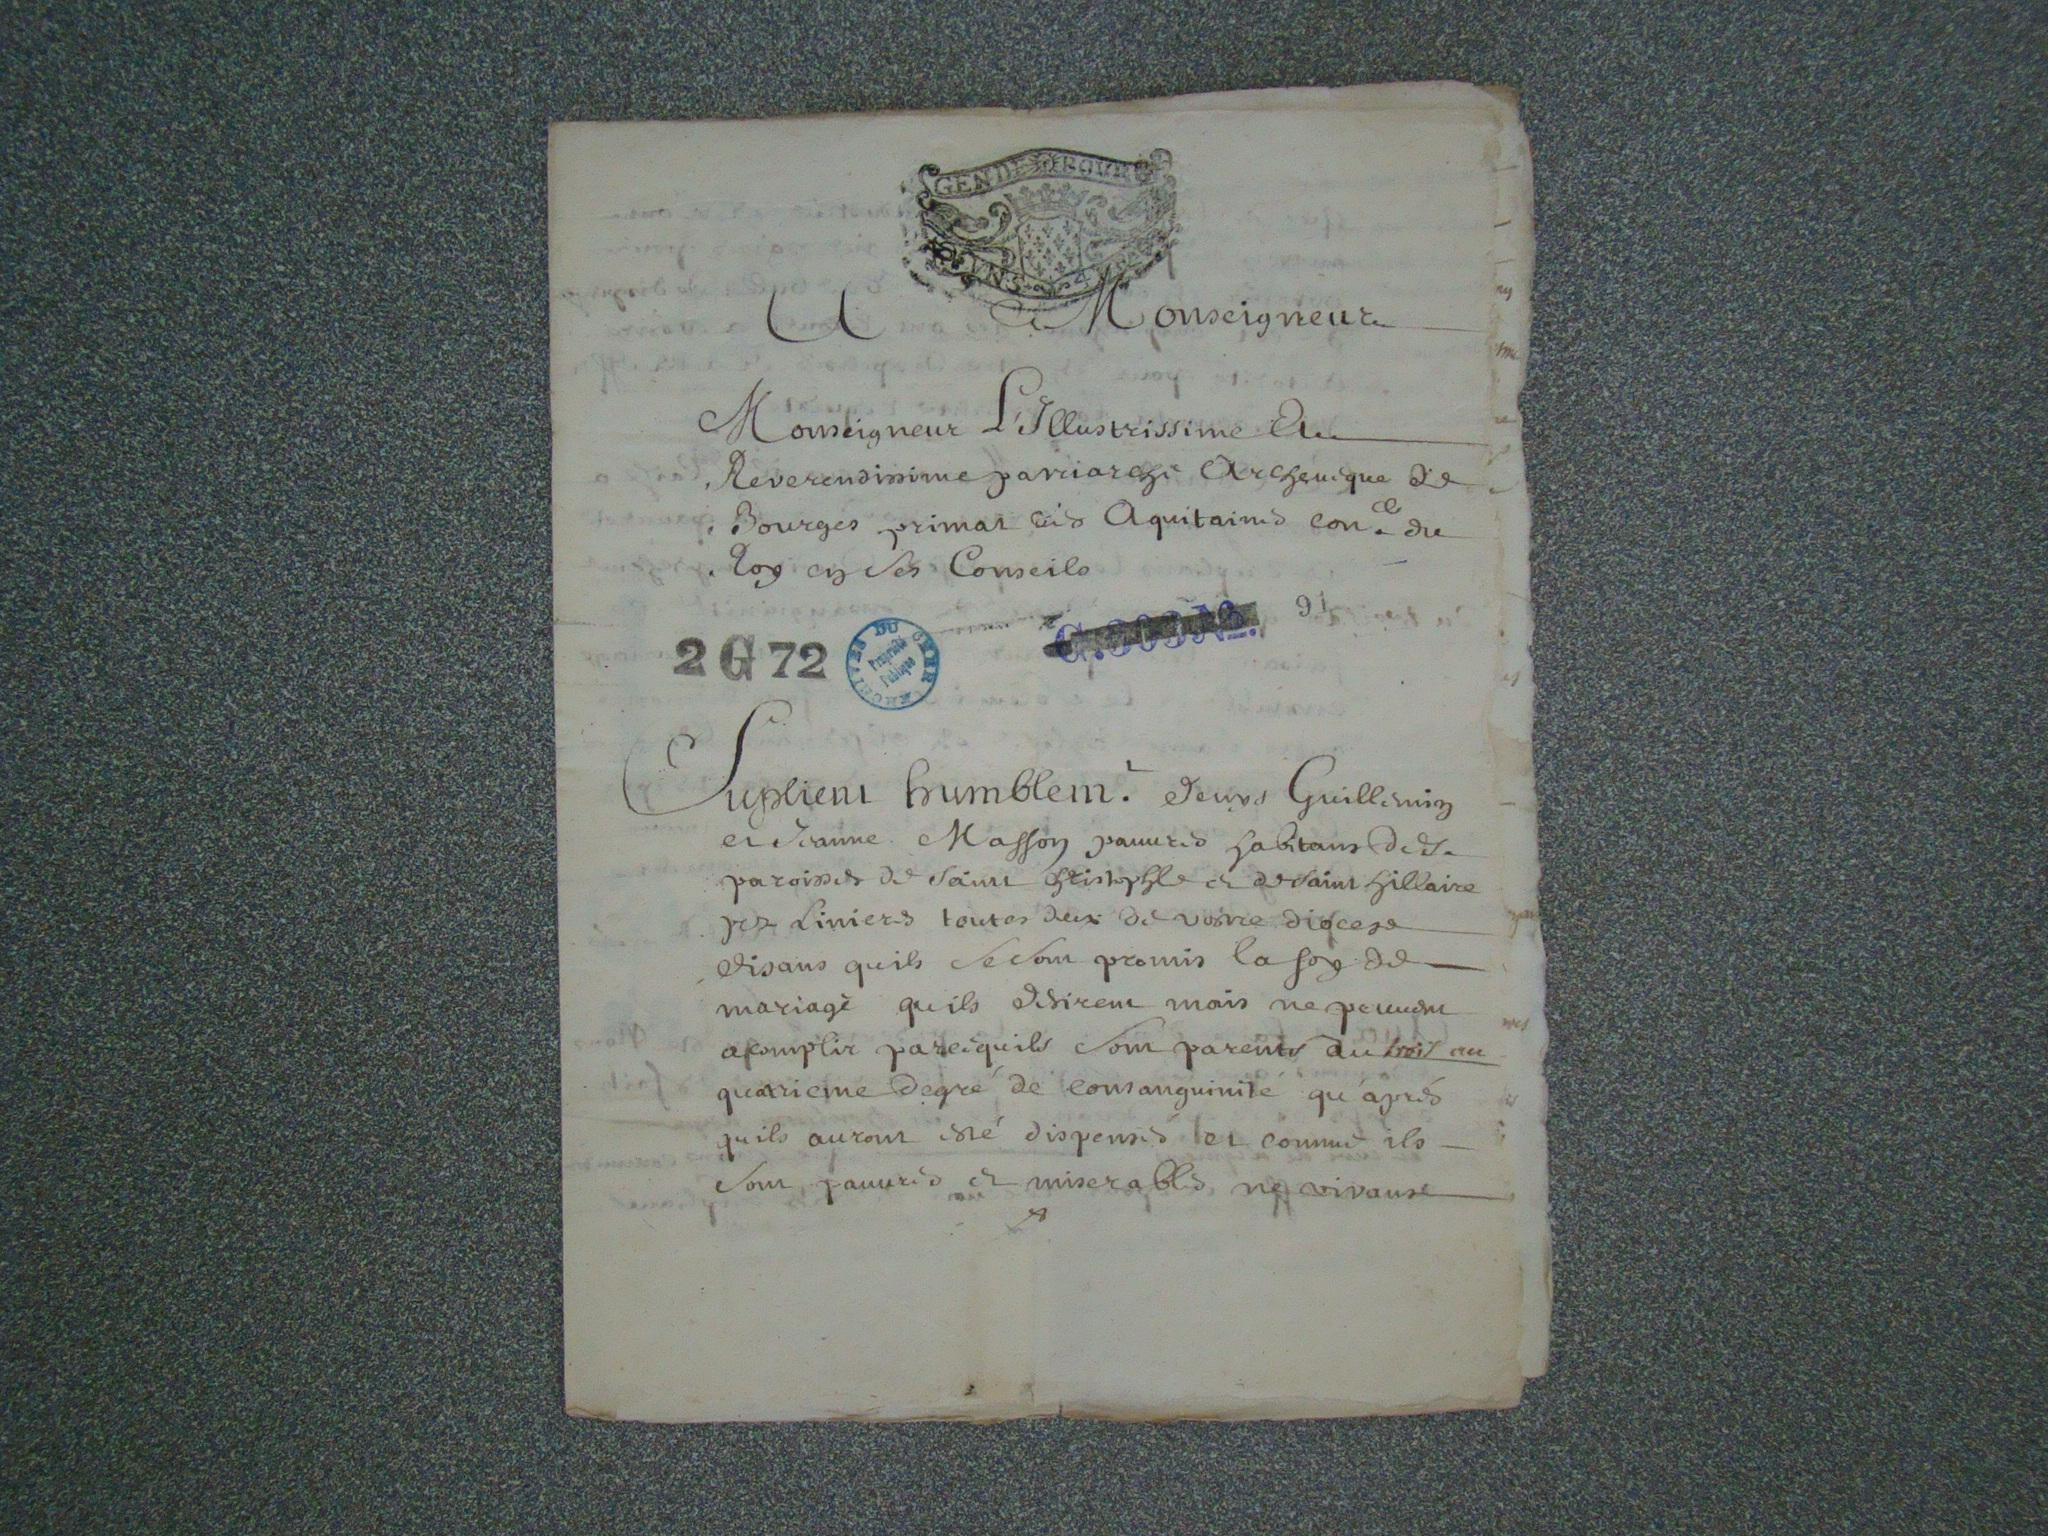 GEN DE BOVR
A Monseigneur
Monseigneur L'Illustrissime Et
Reverendissime patriarche Archeuêque de
Bourges primat des Aquitaines con.er du
Roy en Ses Conseils
91
2 G 72
ARCHIVES DU CHER
Propriété
Publique
Suplient humblem.t Denys Guillemin
et Jeanne Masson pauures habitans des
paroisses de Saint Christophle et de Saint Hillaire
prez Linieres toutes deux de vostre diocese
disans quils Se Sont promis la foy de
mariage quils desirent mais ne peuuent
acomplir parcequils Sont parents du trois au
quatrieme degré de consanguinité qu'áprés
quils auront esté dispensés et comme ils
Sont pauures et miserables ne vivans